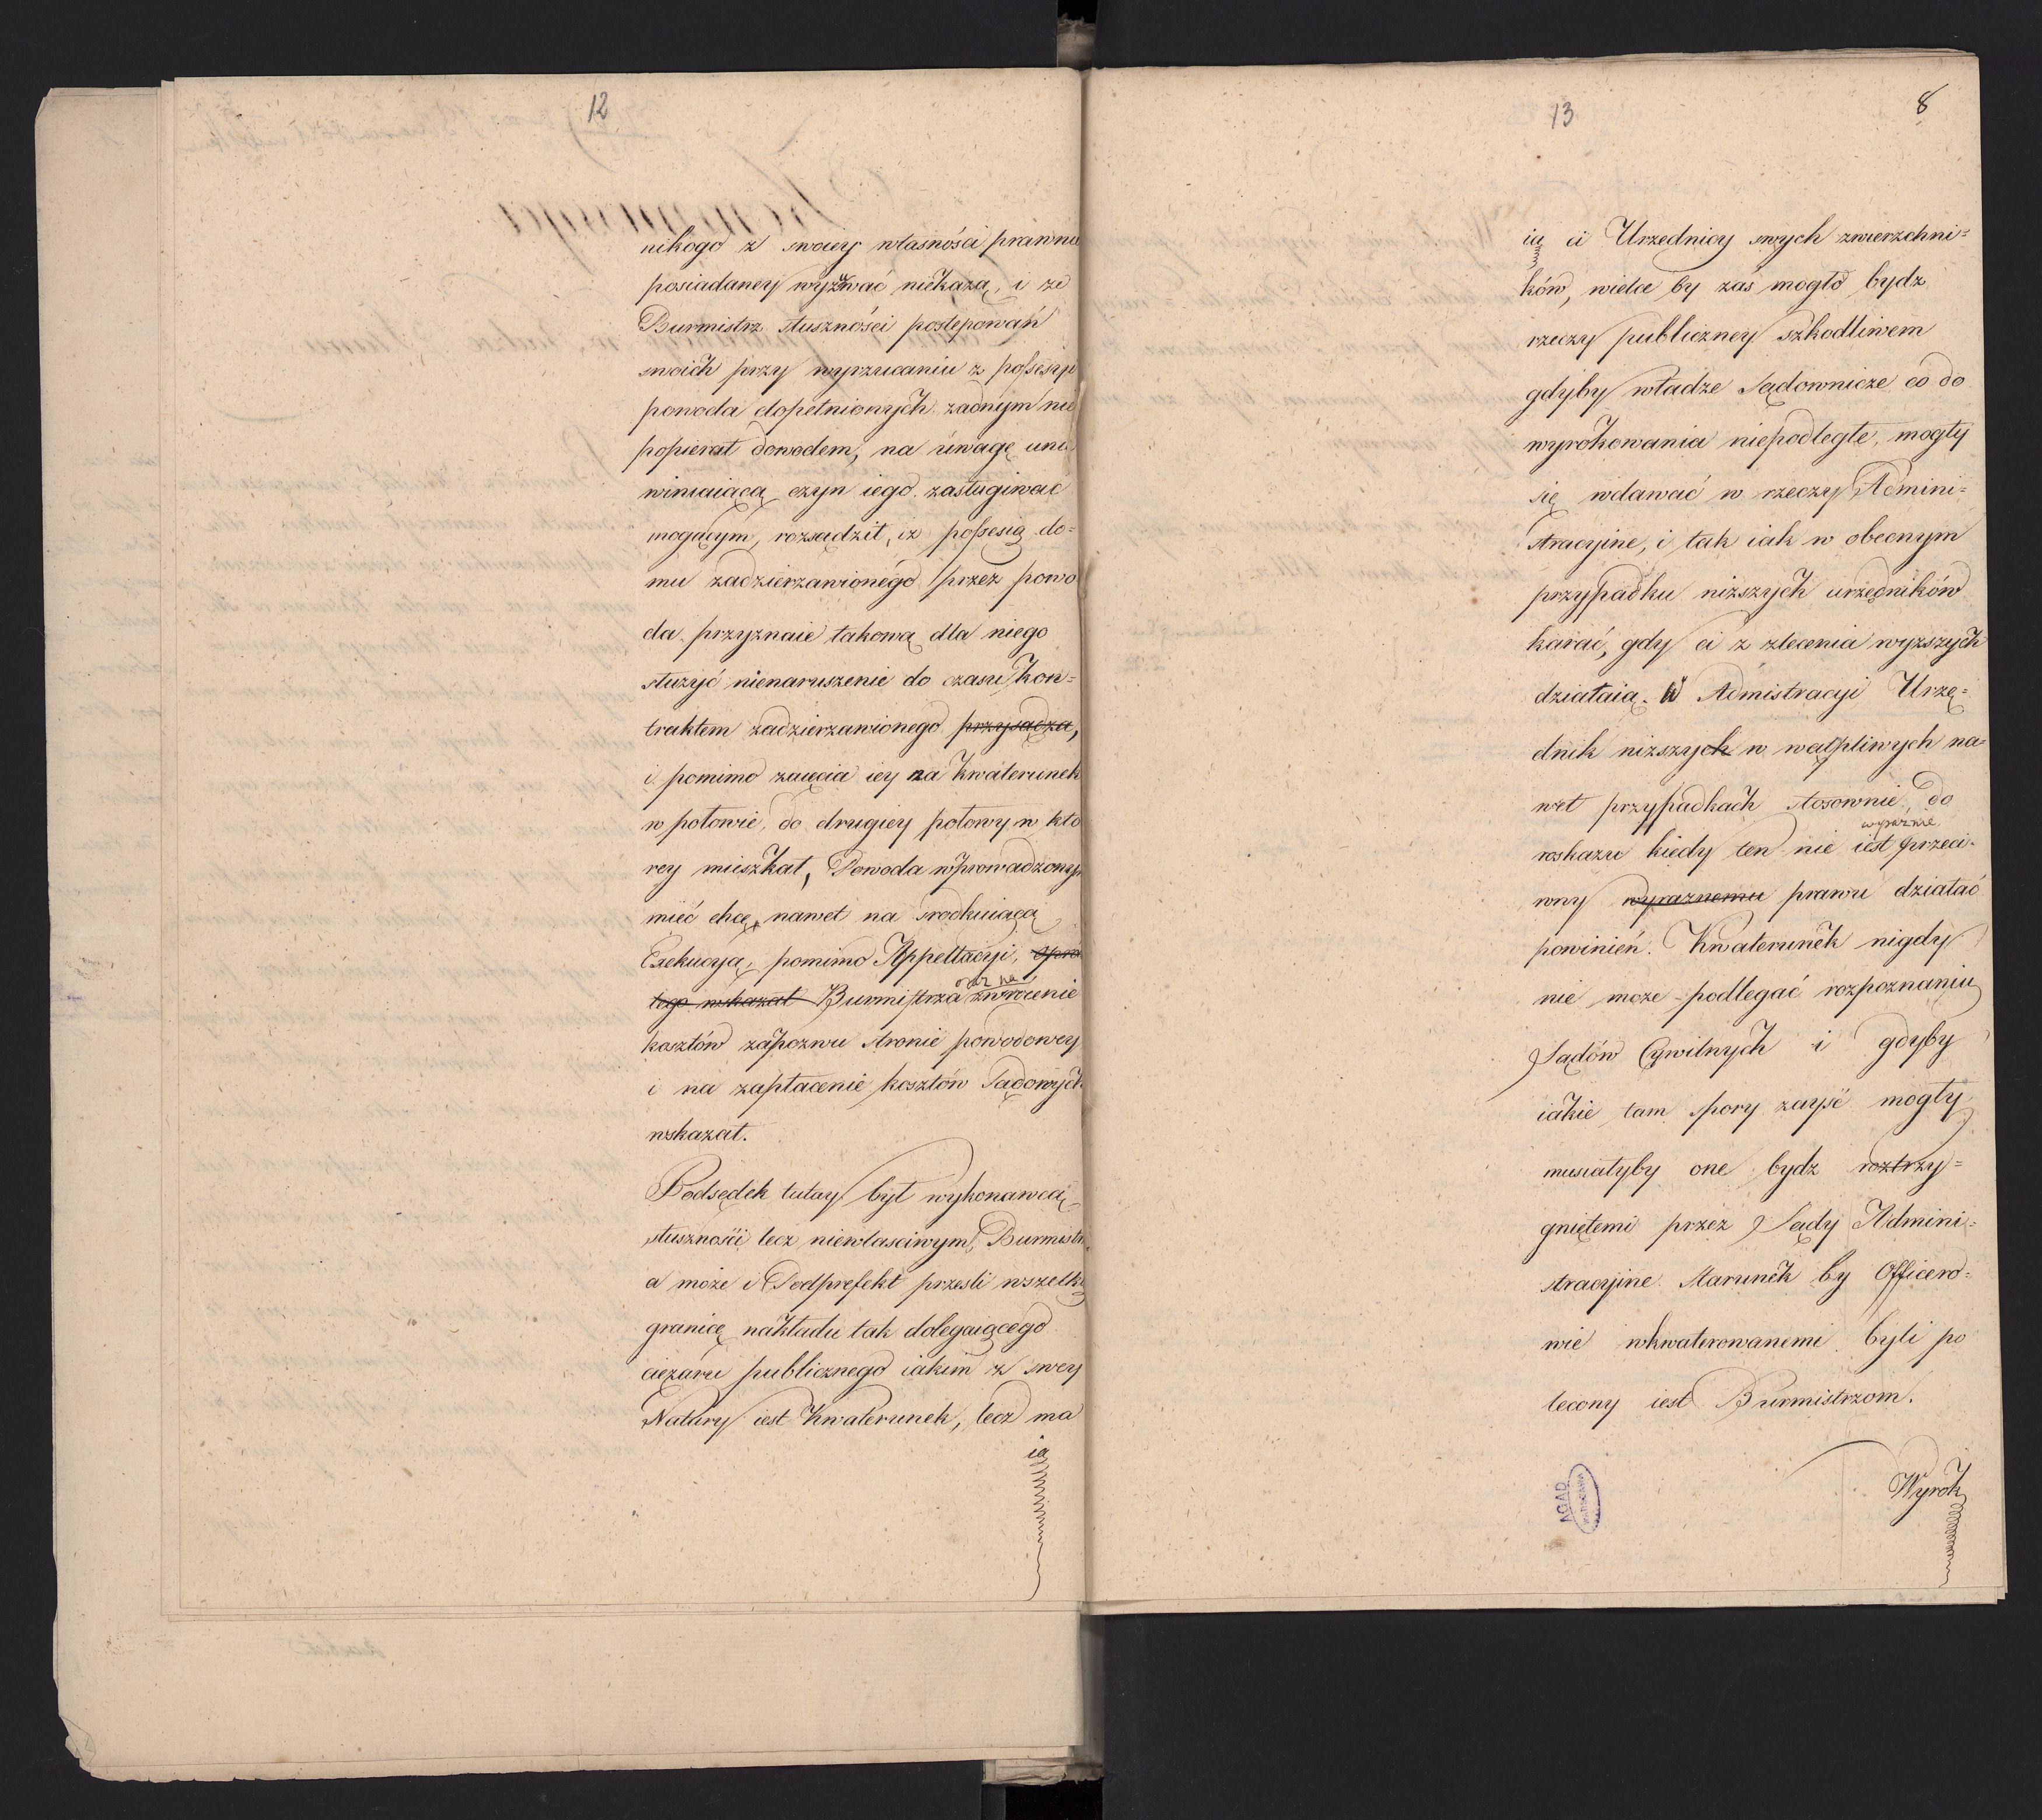 12
nikogo z swoiey własności prawnie
posiadaney wyzuwać niekażą, i że
Burmistrz słuszności postępowań
swoich przy wyrzucaniu z possesyi
powoda dopełnionych żadnym nie
popierał dowodem, na uwagę unie
winiaiącą czyn iego zasługiwać
mogącym, rozsądził, iż possesią do=
mu zadzierżawionego przez powo
da przyznaie takową dla niego
służyć nienaruszenie do czasu kon=
traktem zadzierżawionego przysądza,
i pomimo zaięcia iey na kwaterunek
w połowie, do drugiey połowy w któ
rey mieszkał, Powoda wprowadzonym
mieć chce, nawet na środkuiącą
Exekucyą, pomimo Appellacyi, opró
tego wskazał Burmistrza oraz na zwrócenie
kosztów zapozwu stronie powodowey
i na zapłacenie kosztów Sądowych
wskazał.
Podsędek tutay był wykonawcą
słuszności lecz niewłaściwym, Burmistrz
a może i Podprefekt przeszli wszelką
granicę nakładu tak dolegaiącego
ciężaru publicznego iakim z swey
Natury iest Kwaterunek, lecz ma
ią
13
8
ią ci Urzędnicy swych zwierzchni=
ków, wielce by zaś mogło bydz
rzeczy publiczney szkodliwem
gdyby władze Sądownicze co do
wyrokowania niepodległe, mogły
się wdawać w rzeczy Admini=
stracyine, i tak iak w obecnym
przypadku niższych urzędników
karać, gdy ci z zlecenia wyższych
działaią. W Admistracyi Urzę=
dnik niższych w wątpliwych na=
wet przypadkach stosownie do
roskazu kiedy ten nie iest wyraźnie przeci=
wny wyraźnemu prawu działać
powinień. Kwaterunek nigdy
nie może podlegać rozpoznaniu
Sądów Cywilnych i gdyby
iakie tam spory zayść mogły
musiałyby one bydz roztrzy=
gniętemi przez Sądy Admini=
stracyine. Starunek by Officero=
wie wkwaterowanemi byli po
lecony iest Burmistrzom.
Wyrok
AGAD
WARSZAWA